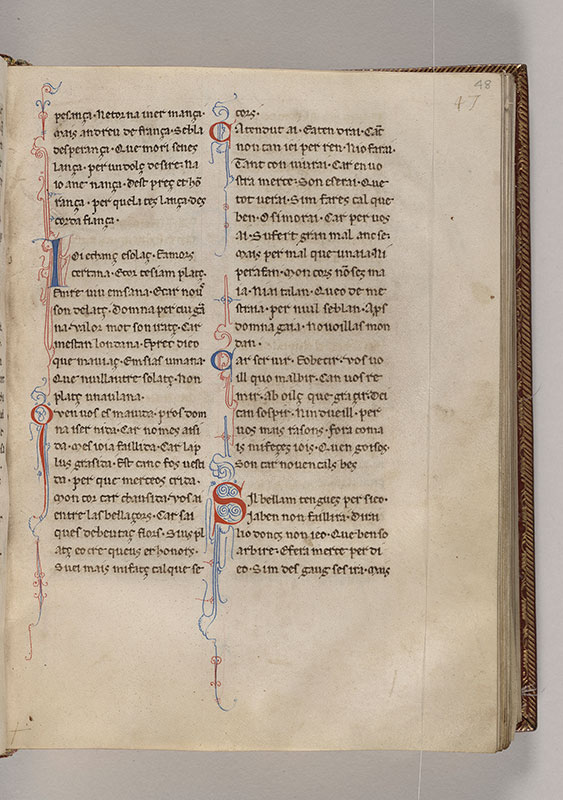 48
47
pesança · Ne torna iner mança ·
Mais andreu de frança · Sebla
desperança · Que mori senes
lança · per un dolç desire · Na
io anc nança · dest preç et hō
rança · per quela ces lança · des
corda fiança ·
Ioi e chanç e solaç · Eamors
certana · E cor cesiam plaçe
Enre viu em sana · E car nou
son delatç · Domna per cui gā
na · valor mot son iratç · Car
mestan londana · Eprec dieo
que maviaç · Em sias umana ·
Que nuill autre solatç · Non
platç unaulana ·
Oven vos es mauida · pros dom
na iser uida · Car nomes aisi
da · Mes ioia faillida · Car lap
lus grasida · Est cane fos uesti
da · per que merceos crida ·
Mon cor car chausida · vos ai
entre las bellaçors · Car sai
ques debentaç flors · Sius pl
atç cocre queus er honors ·
S uei mais mi fatç cal que se
cors ·
Catendut ai · Eaten drai · Car
non can iei per ren · Nio farai ·
Tant con uiurai · Car en uo
stra merce · Son eserai · Que
tot uerai · Sim fares cal que
ben · O si morai · Car per uos
ai · Sufert gran mal ancse ·
Mais per mal que unaia · Ni
perafan · Mon cors nōses ma
ia · Ni ai talan · Queo de me
straia · per nuil seblan · Aps
domna gaia · No uoillas mon
dan ·
Car ser uir · Eobetir · vos uo
ill quo malbir · Can uos re
mir · Ab oilç que graçir dei
can sospir · Nin dueill · per
uos mais rasons · Fora coma
is mifeçes iois · Quen gotses ·
Son tar nouencals bes
Sil bellam tengues per sieo ·
Ja ben non faillira · Dirai
lio doncs non ieo · Que ben so
arbire · E sera merce per di
eo · Sim des gaug ses ira · Mais